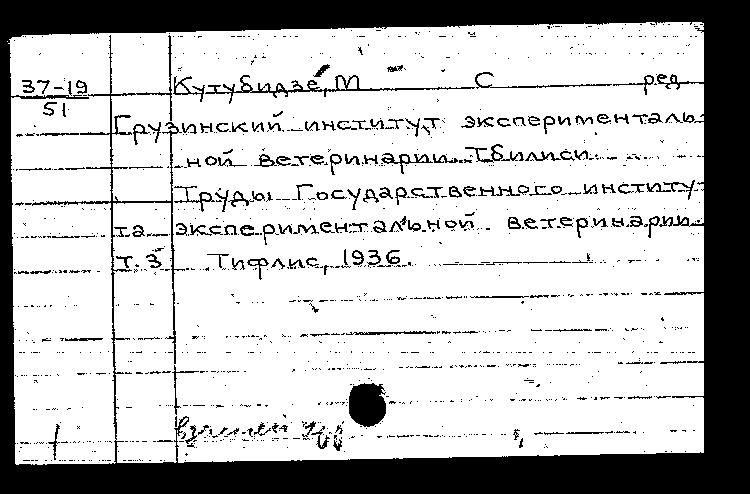 37-19 Кутубидзе, М С ред
51
Грузинский институт эксперименталь-
ной ветеринарии. Тбилиси.
Труды Государственного институ-
та экспериментальной ветеринарии
т. 3 Тифлис, 1936.